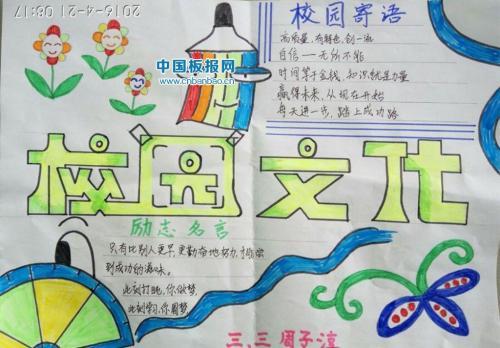 2016-4-21 08:17
校园寄语
高质量，有特色，创一流
自信—无所不能
时间等于金钱，知识就是力量
赢得未来，从现在开始
每天进一步，踏上成功路
中国板报网
www.cnbanbao.cn
校园文化
励志名言
只有比别人更早、更勤奋地努力，才能尝
到成功的滋味。
此刻打盹，你做梦
此刻学习，你圆梦
三、三 周子淳